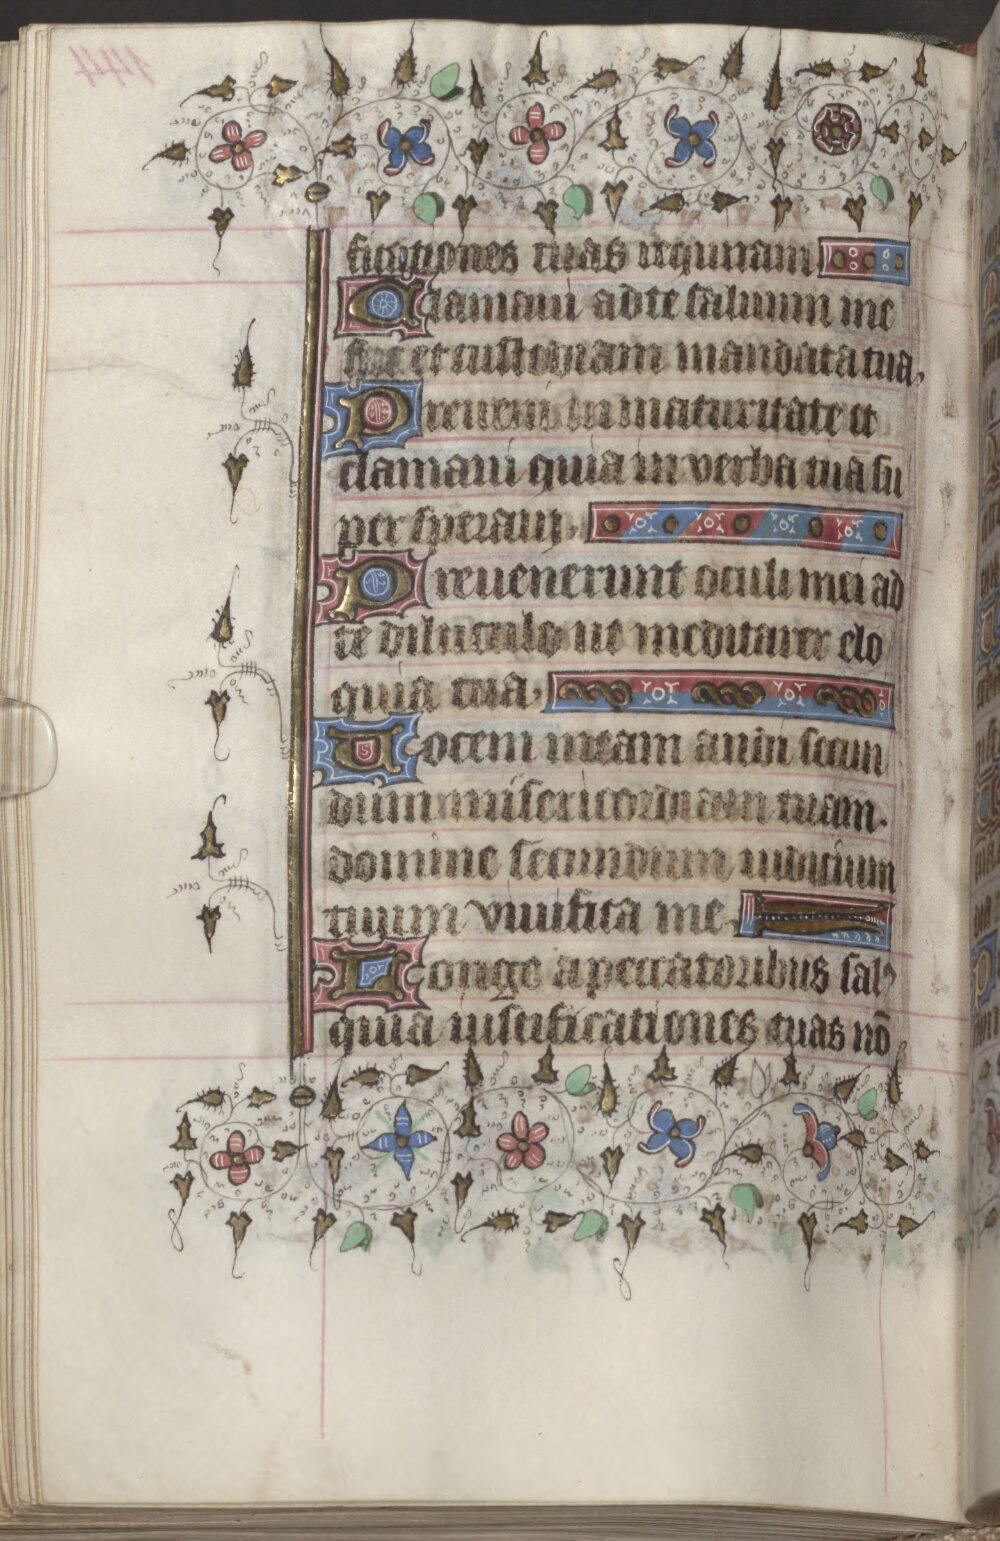 ficationes tuas requiram
Clamaui ad te saluum me
fac et custodiam mandata tua.
Preueni in maturitate et
clamaui quia in verba tua su
per speraui.
Preuenerunt oculi mei ad
te diluculo ut meditarer elo
quia tua.
Uocem meam audi secun
dum misericordiam tuam.
domine secundum iudicium
tuum viuifica me
Longe a peccatoribus sal9
quia iustificationes tuas nō